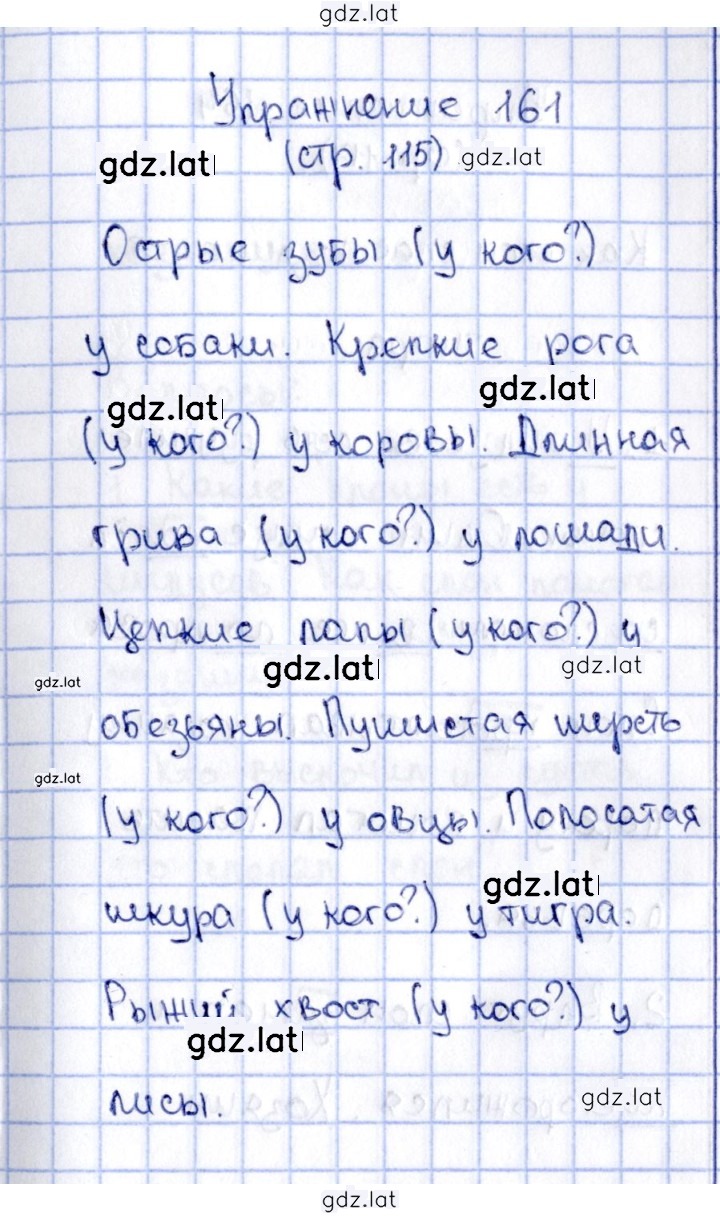 gdz.lat
Упражнение 161
gdz.lat (стр. 115) gdz.lat
Острые зубы (у кого?)
у собаки. Крепкие рога
gdz.lat gdz.lat
(у кого?) у коровы. Длинная
грива (у кого?) у лошади.
Цепкие лапы (у кого?) у
gdz.lat gdz.lat gdz.lat
обезьяны. Пушистая шерсть
gdz.lat
(у кого?) у овцы. Полосатая
gdz.lat
шкура (у кого?) у тигра.
Рыжий хвост (у кого?) у
gdz.lat
лисы. gdz.lat
gdz.lat